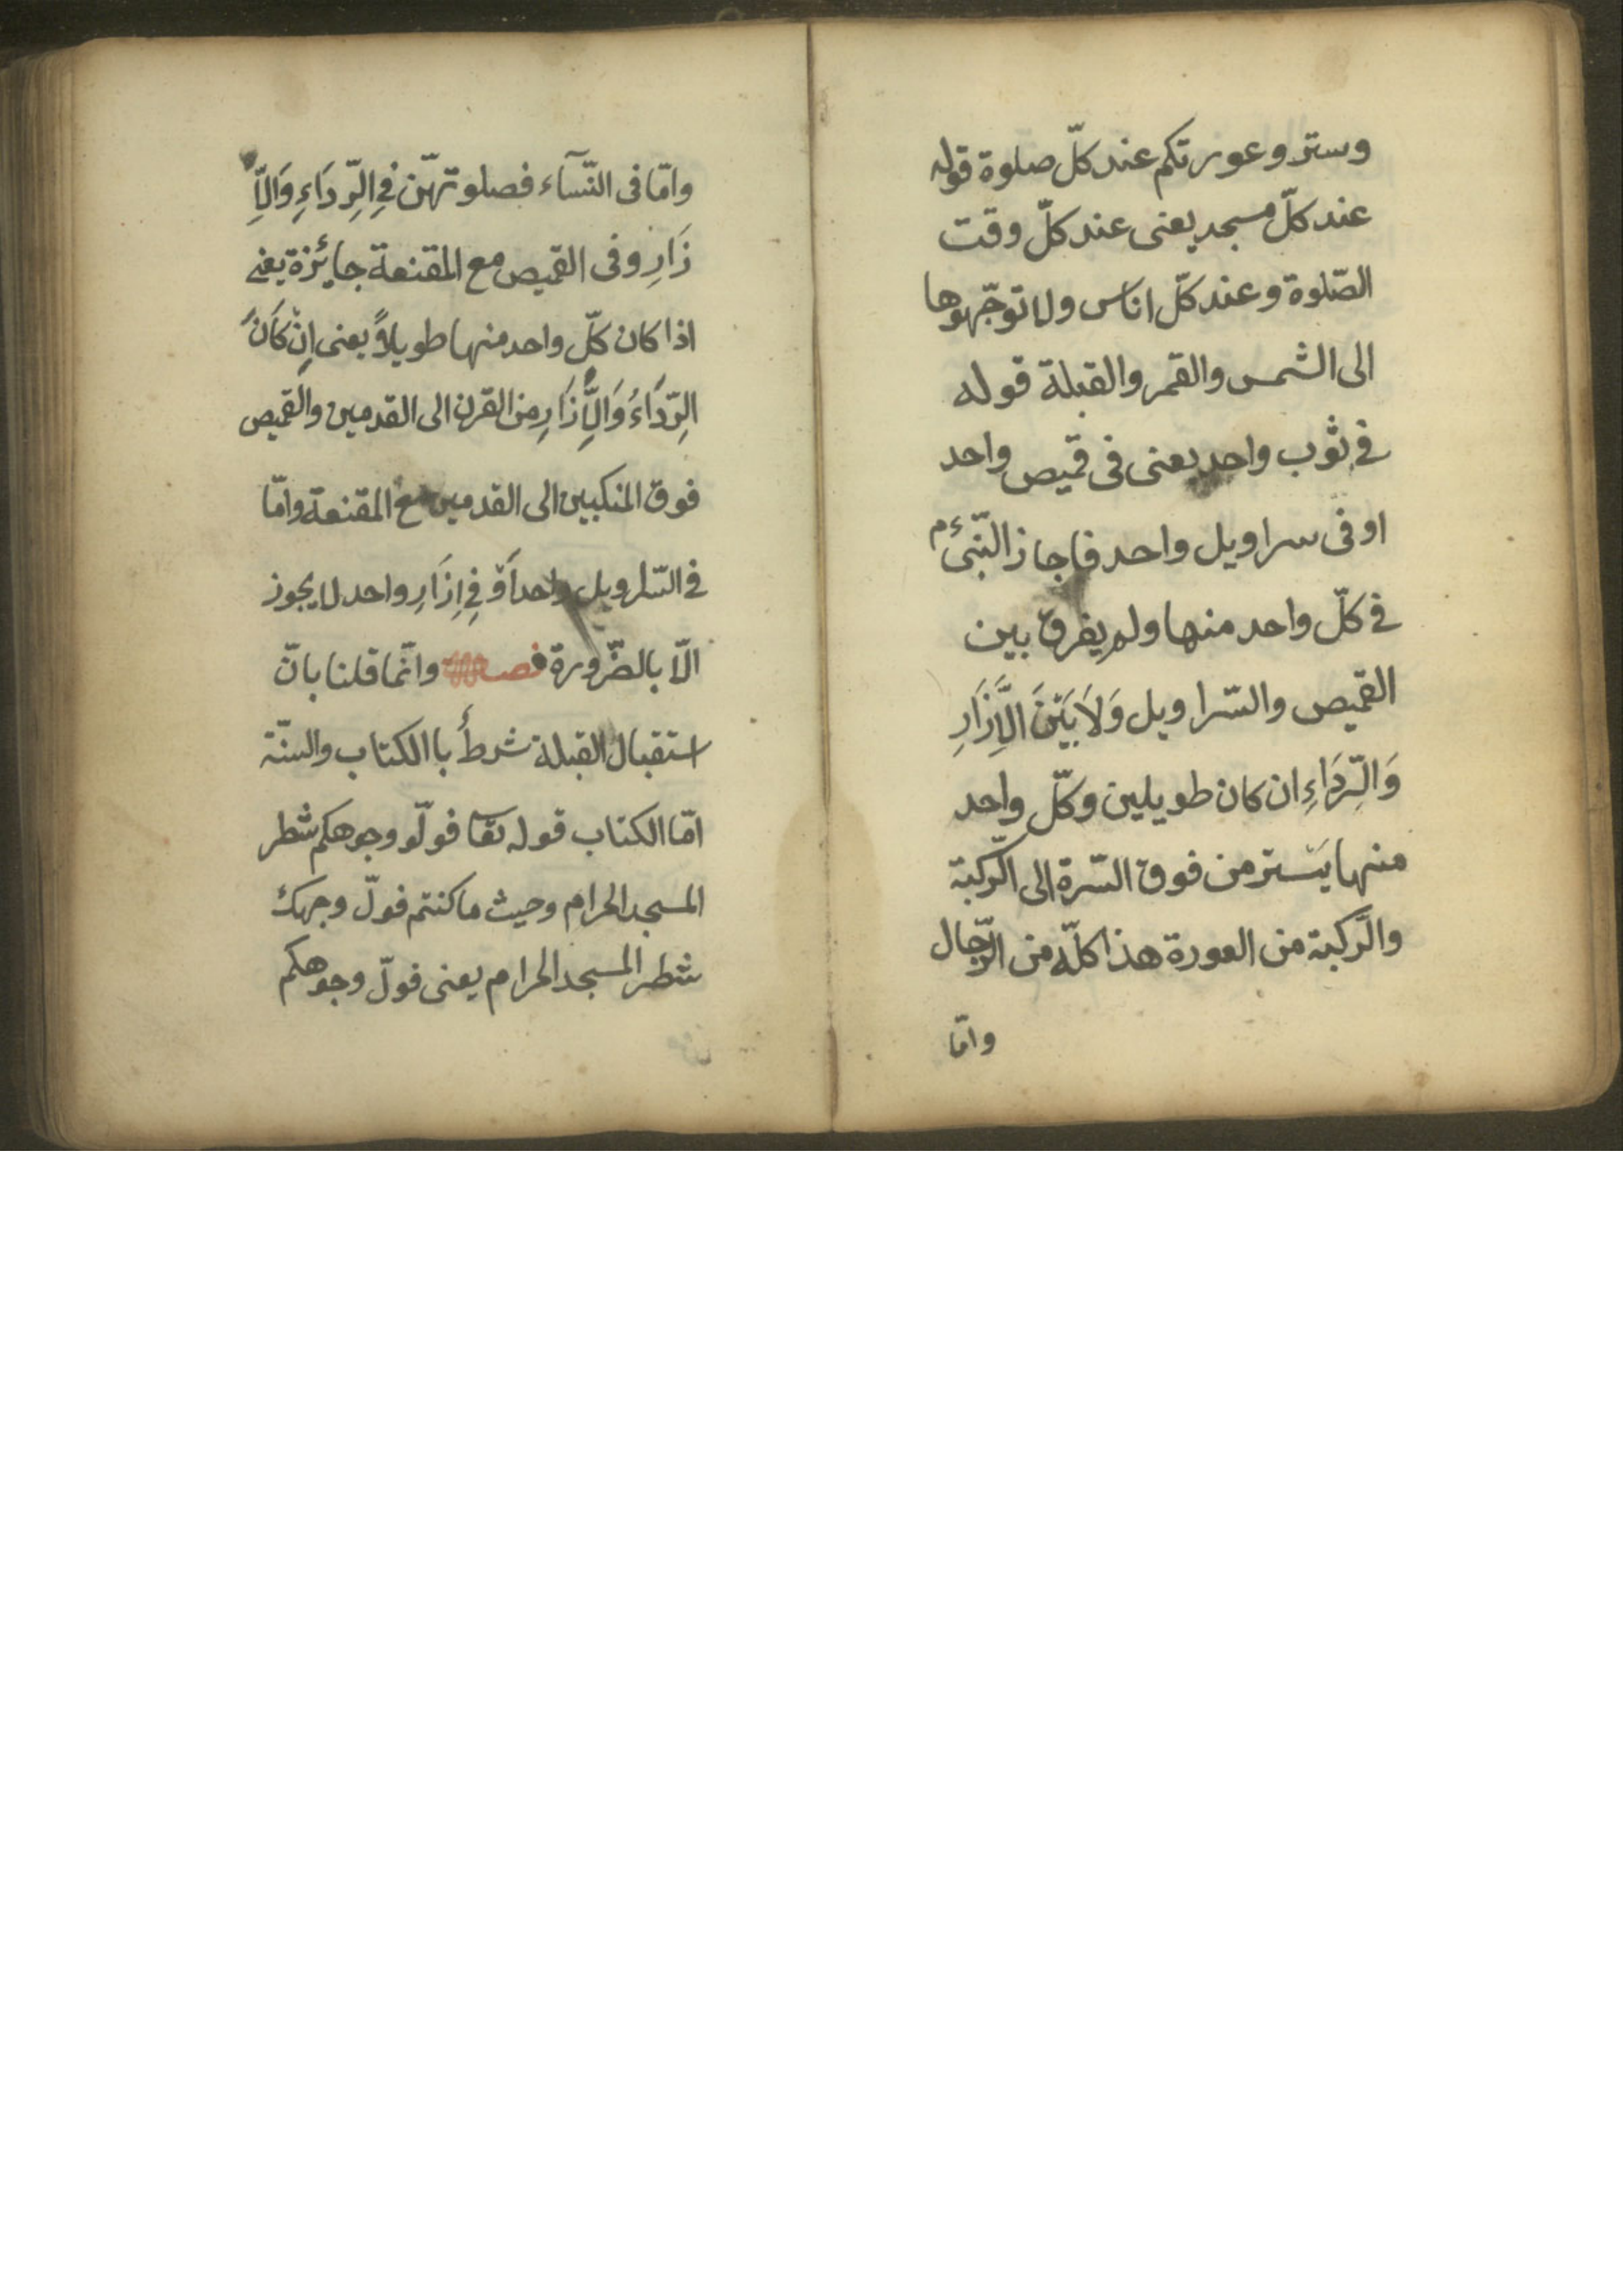 وستر و عورتكم عند كلّ صلوة قوله
عند كلّ مسجد يعنى عند كلّ وقت
الصّلوة وعند كلّ اناس ولا توجّهوها
الى الشمس والقمر والقبلة قوله
فى ثوب واحد يعنى فى قميص واحد
او فى سراويل واحد فاجاز النّبىء م
فى كلّ واحد منها ولم يفرق بين
القميص والسّراويل وَلَا بَيْنَ الْاِزَارِ
وَالرِّدَاءِ ان كان طويلين وكلّ واحد
منها يستر من فوق السّرة الى الرّكبة
والرّكبة من العورة هذا كلّه من الرّجال
وامّا
وامّا فى النّسآء فصلوتهّن فِى الرِّدَاءِ وَالْاِ
زَارِ وفى القميص مع المقنعة جايئزة يعنى
اذا كان كلّ واحد منها طويلاً يعنى اِنْ كَانَ
الرِّدَاءُ وَالْاِزَارِ من القرن الى القدمين والقميص
فوق المنكبين الى القدمين مع المقنعة وامّا
فى السّراويل واحد اَوْ فِى اِزَارِ واحد لا يجوز
الّا بالضّرورة فصل وانّما قلنا بانّ
استقبال القبلة شرطٌ با الكتاب والسنّة
امّا الكتاب قوله تعا فولّو وجوهكم شطر
المسجد الحرام وحيث ما كنتم فولّ وجهك
شطر المسجد الحرام يعنى فولّ وجوهكم